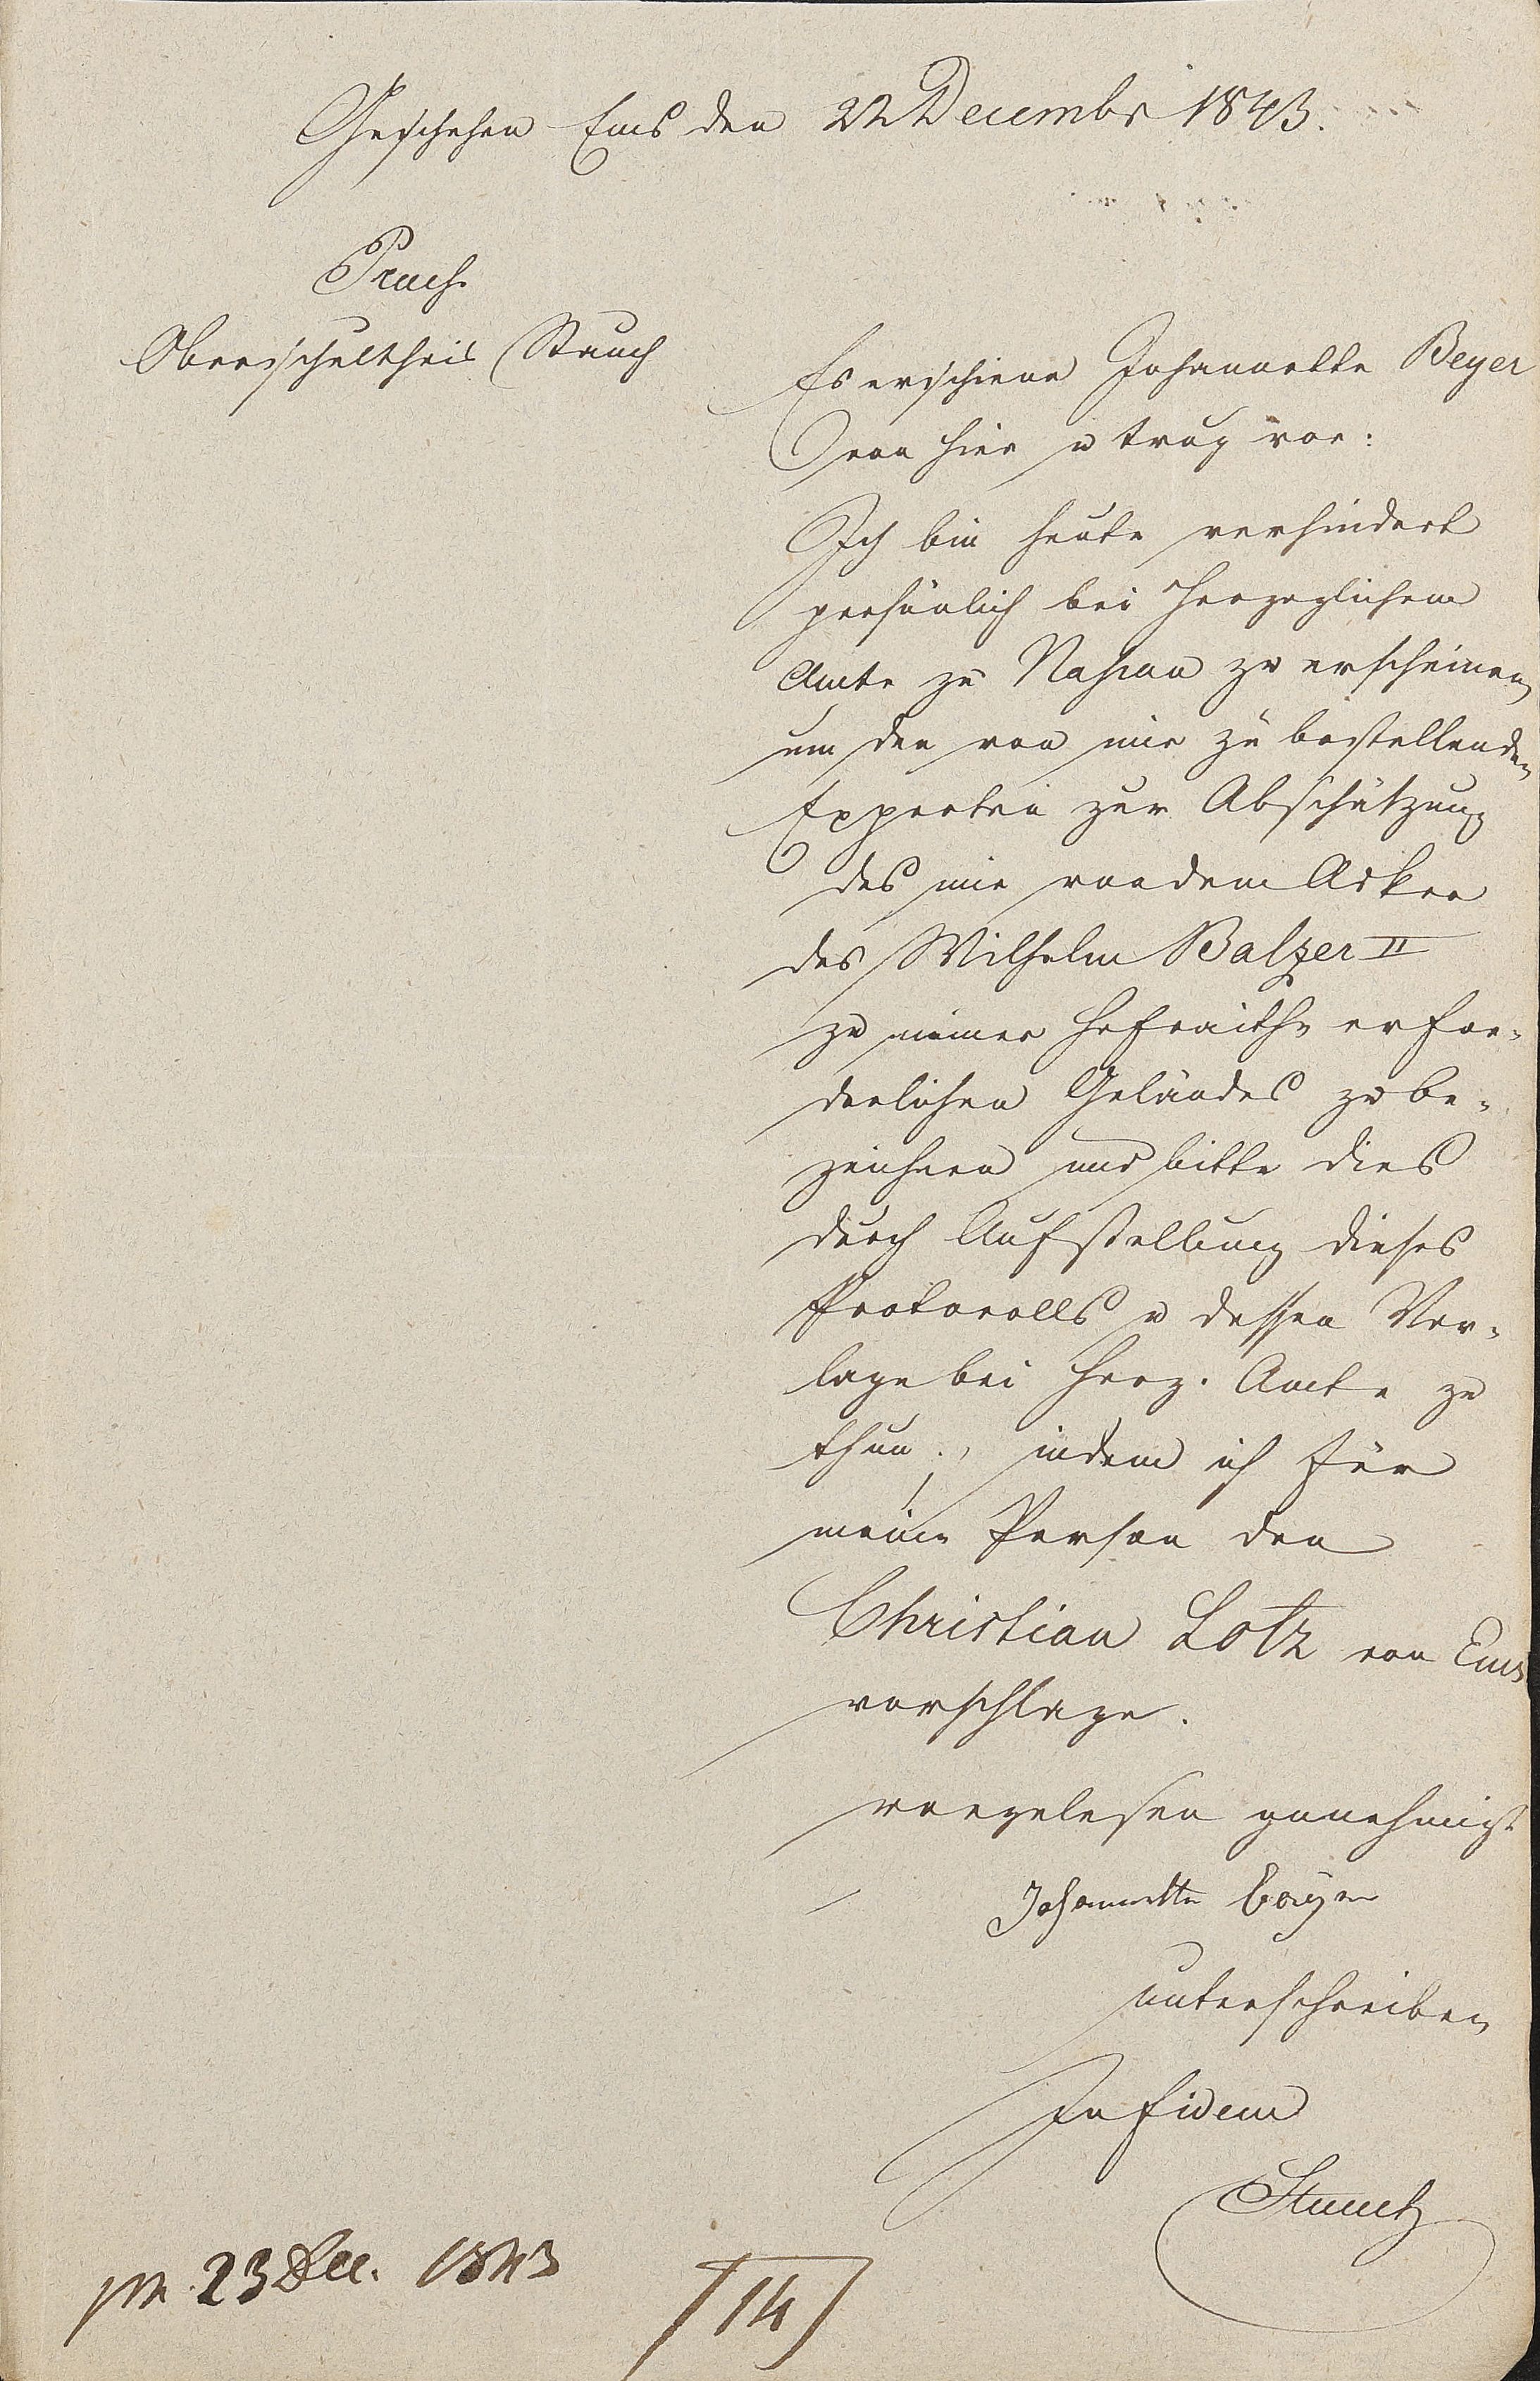 Geschehen Ems den 22 Decembr 1843.
Praes.
Oberschultheis Stauch
Es erschiene Johannette Beyer
von hier u trug vor:
Ich bin heute verhindert
persönlich bei Herzoglichem
Amte zu Nassau zu erscheinen
um den von mir zu bestellenden
Experten zur Abschätzung
des mir von dem Acker
des Wilhelm Balzer II
zu meiner Hofraithe erfor-
derlichen Geländes zu be-
zeichnen und bitte dies
durch Aufstellung dieses
Protocolls u dessen Vor-
lage bei Herz. Amte zu
thun, indem ich für
meine Person den
Christian Lotz von Ems
vorschlage.
vorgelesen genehmigt
Johannette Beyer
unterschrieben
In fidem
Stauch
pr. 23 Dec. 1843
14